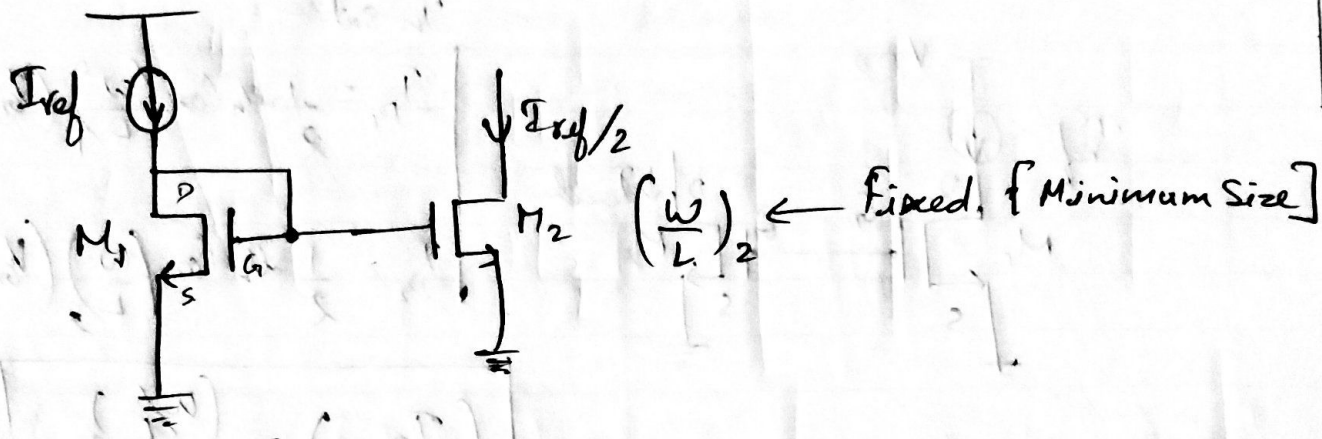 Iref
Iref/2
D
M1
G
S
M2
(W/L)2 ← Fixed. [Minimum Size]